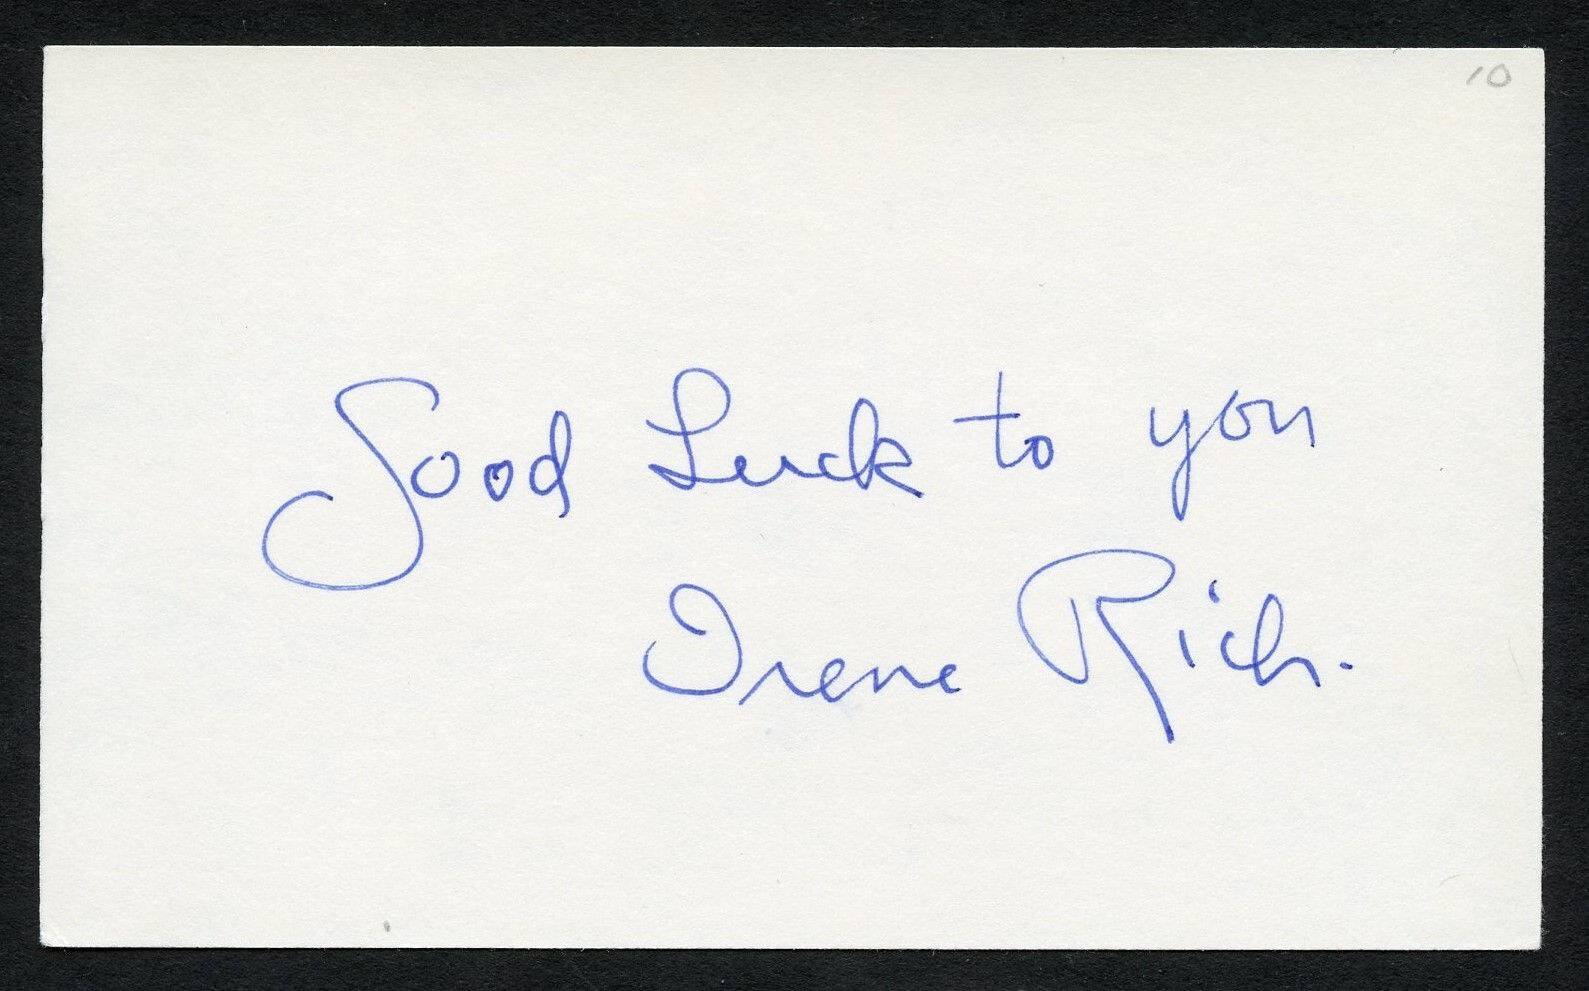 10
Good Luck to you
Irene Rich.